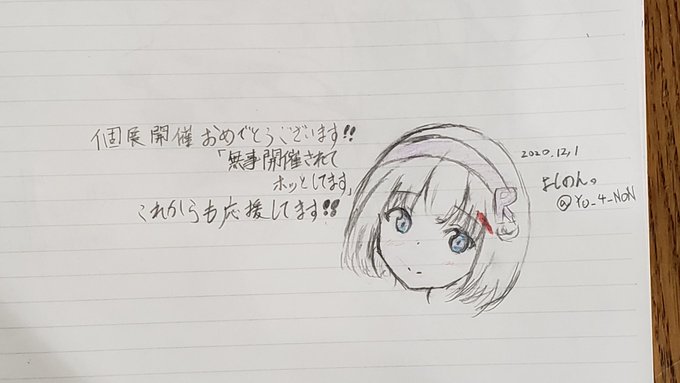 個展開催おめでとうございます!!
「無事開催されて
ホッとしてます」
これからも応援してます!!
2020.12.1
よしのん。
@YU_4_NON
R